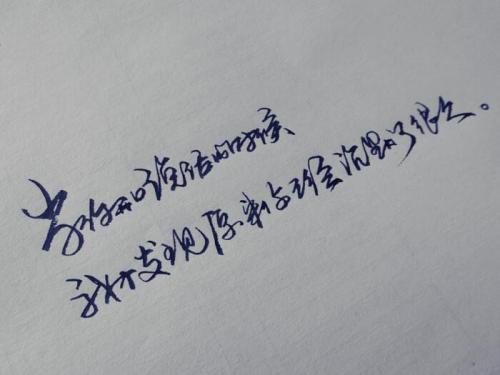 当你开口说话的时候
我才发现原来你已经沉默了很久。